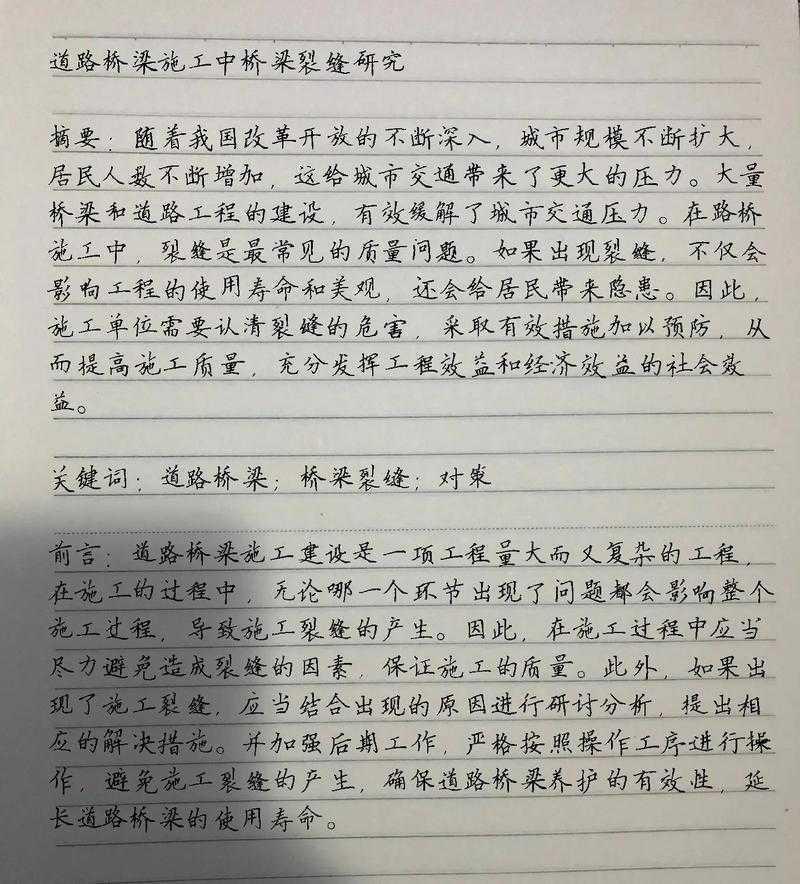 道路桥梁施工中桥梁裂缝研究
摘要：随着我国改革开放的不断深入，城市规模不断扩大，
居民人数不断增加，这给城市交通带来了更大的压力。大量
桥梁和道路工程的建设，有效缓解了城市交通压力。在路桥
施工中，裂缝是最常见的质量问题。如果出现裂缝，不仅会
影响工程的使用寿命和美观，还会给居民带来隐患。因此，
施工单位需要认清裂缝的危害，采取有效措施加以预防，从
而提高施工质量，充分发挥工程效益和经济效益的社会效
益。
关键词：道路桥梁；桥梁裂缝；对策
前言：道路桥梁施工建设是一项工程量大而又复杂的工程，
在施工的过程中，无论哪一个环节出现了问题都会影响整个
施工过程，导致施工裂缝的产生。因此，在施工过程中应当
尽力避免造成裂缝的因素，保证施工的质量。此外，如果出
现了施工裂缝，应当结合出现的原因进行研讨分析，提出相
应的解决措施。并加强后期工作，严格按照操作工序进行操
作，避免施工裂缝的产生，确保道路桥梁养护的有效性，延
长道路桥梁的使用寿命。